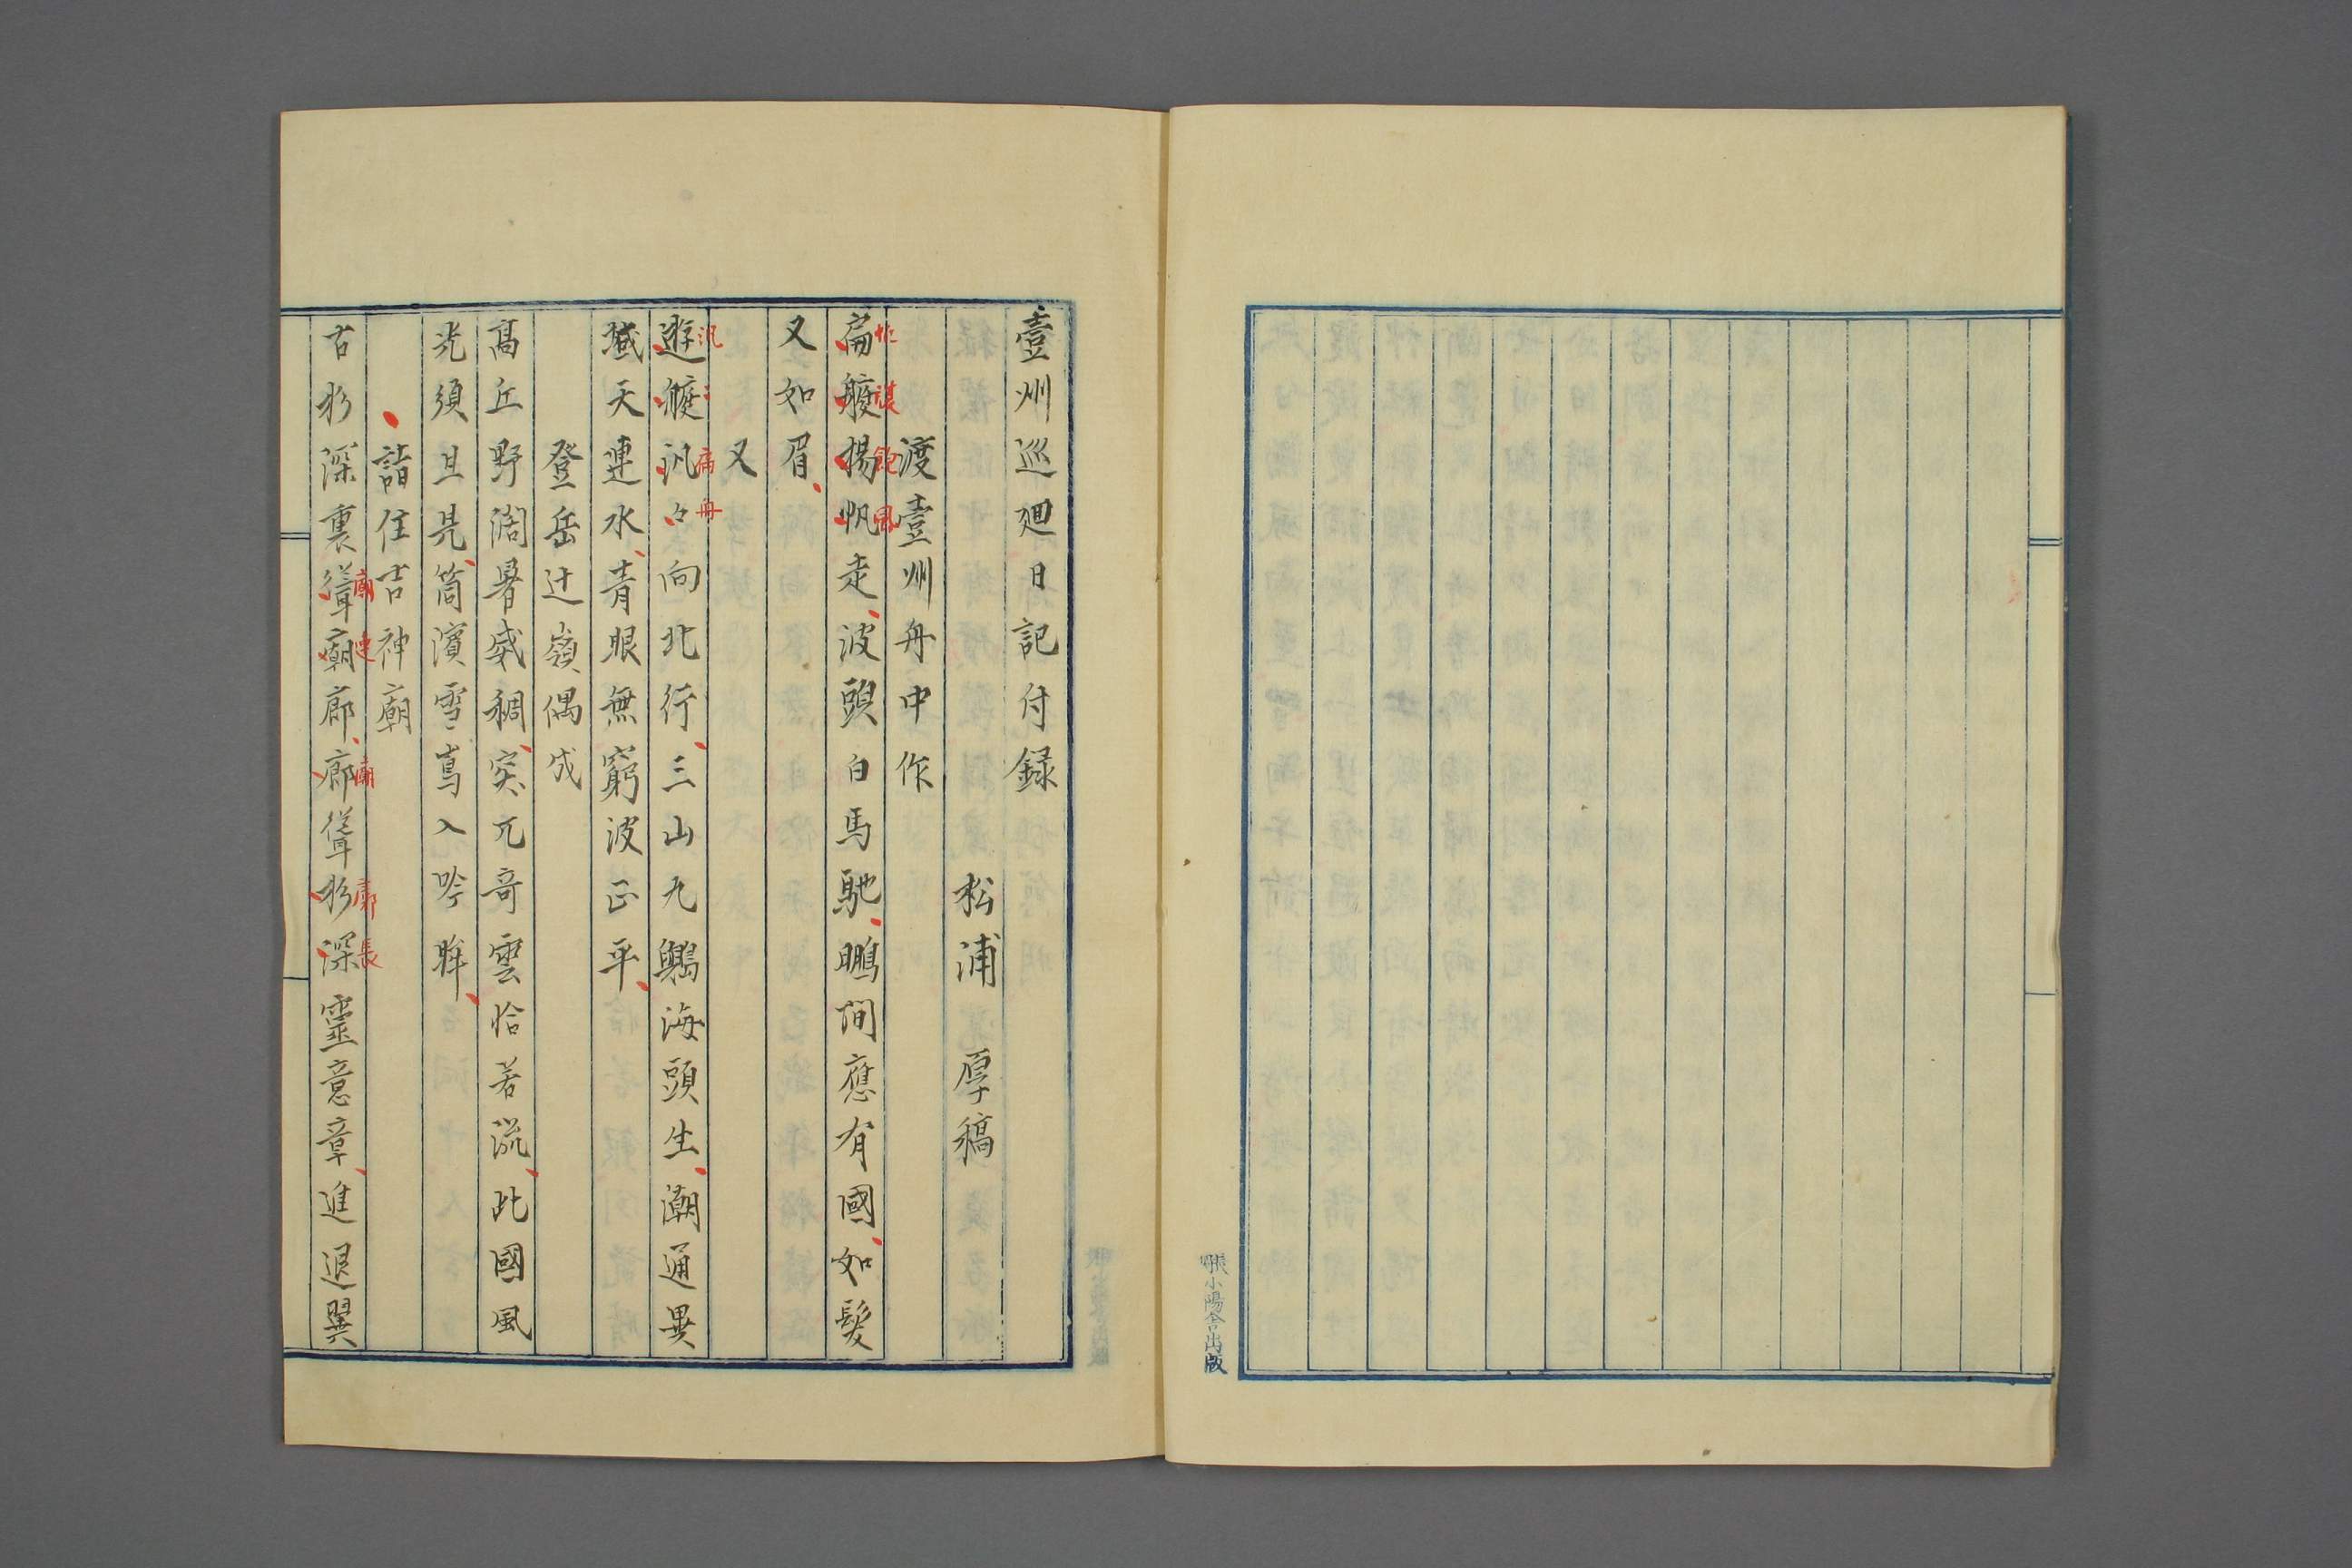 小陽舎出版
壹州巡廻日記付録
松浦 厚稿
渡壹州舟中作
扁艭揚帆走波頭白馬馳鵬間應有國如髮
又如眉
又
遊艭汎々向北行三山九鼇海頭生潮通異
域天連水青眼無窮波正平
登岳辻嶺偶成
高丘野濶暑威稠突兀奇雲恰若流此國風
光須且見筒濱雪嶌入吟眸
詣住吉神廟
古杉深裏聳廟廊廊聳杉深靈意章進退翼
汎
扁
舟
廟
廟
廊
長